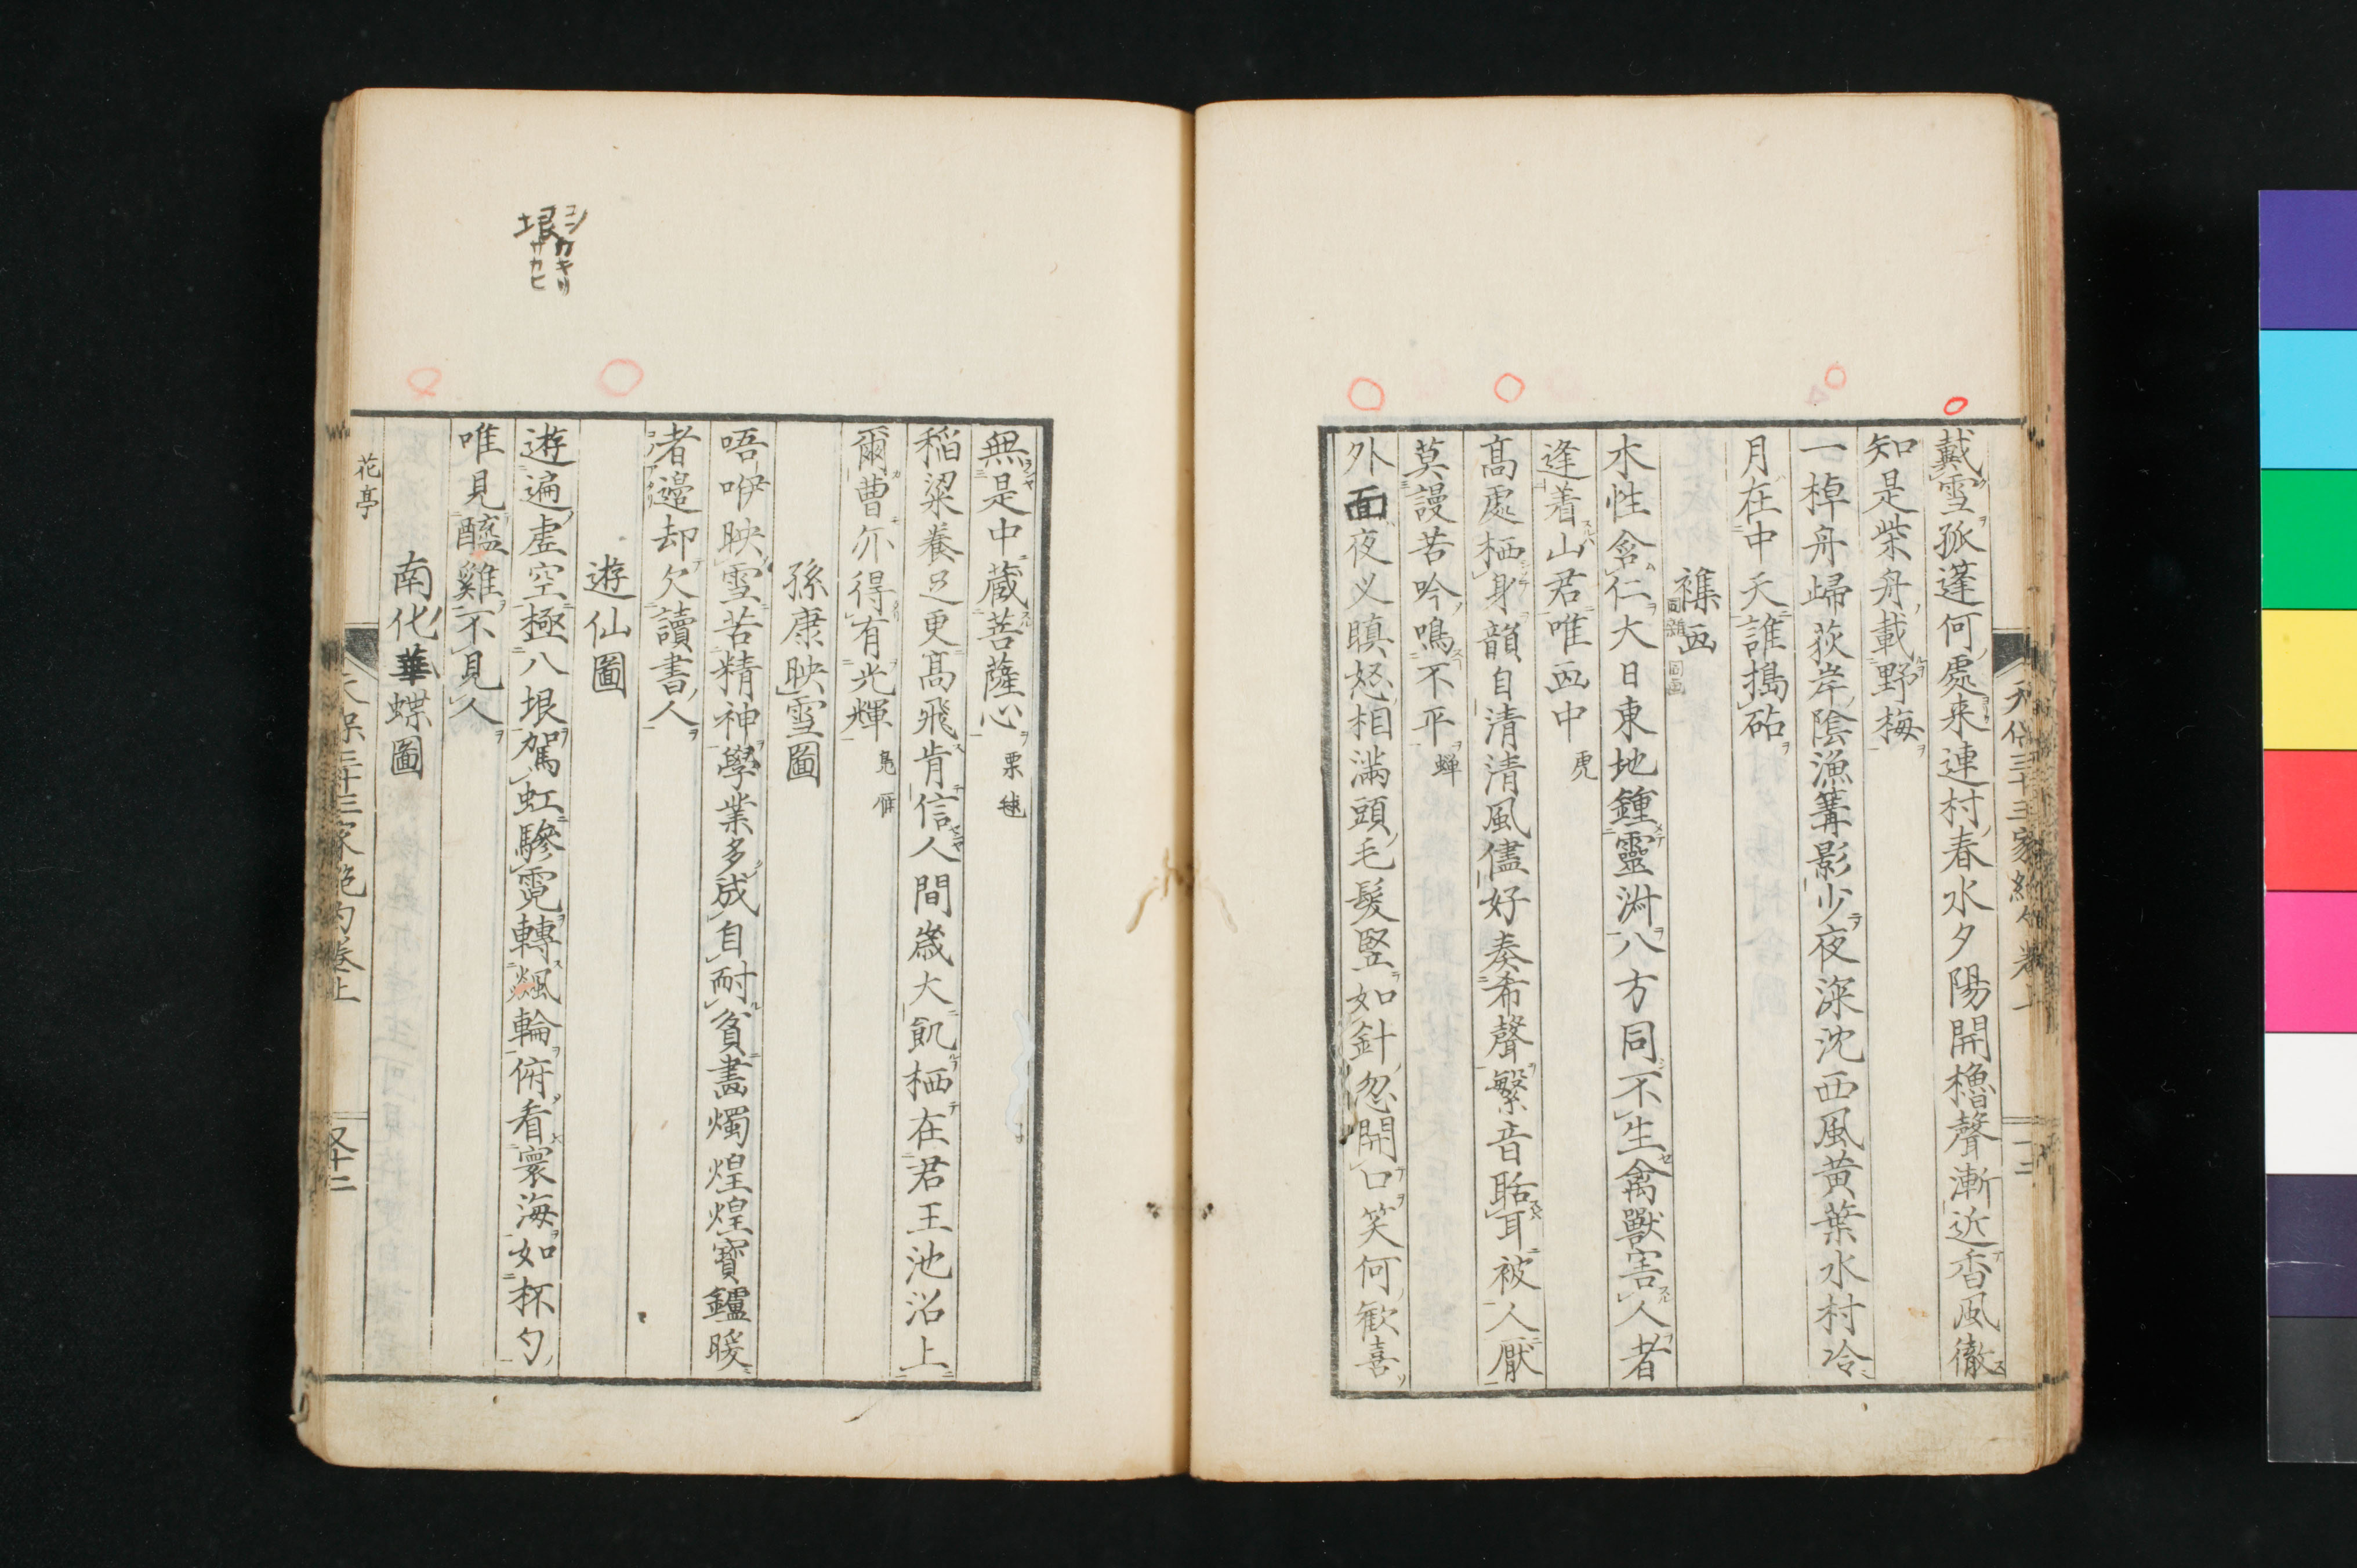 戴雪孤蓬何處来連村春水夕陽開櫓聲漸近香風徹
知是柴舟載野梅
一棹舟歸荻岸陰漁篝影少夜深沈西風黄葉水村冷
月在中天誰搗砧
襍画
木性含仁大日東地鍾靈淋八方同不生禽獸害人者
逢着山君唯画中 虎
髙處栖身韻自清清風儘好奏希聲繁音聒耳被人厭
莫謾苦吟鳴不平 蝉
外面夜义瞋怒相満頭毛髮竪如針忽開口笑何歓喜
無是中蔵菩薩心 栗毬
稲粱養足更髙飛肯信人間歳大飢栖在君王池沼上
爾曹亦得有光輝 鳬雁
孫康映雪圖
唔咿映雪苦精神學業多成自耐貧畫燭煌煌寳鑪暖
者邉却欠讀書人
遊仙圖
遊遍虚空極八垠駕虹驂霓轉飈輪俯看寰海如杯勺
唯見醯雞不見人
南化華蝶圖
花亭
天保三十三家絶句巻上
又十二
垠
コン
カキリ
サカヒ